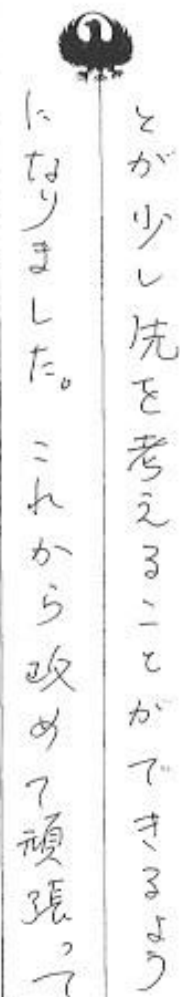 とが少し先を考えることができるよう
になりました。これから改めて頑張って